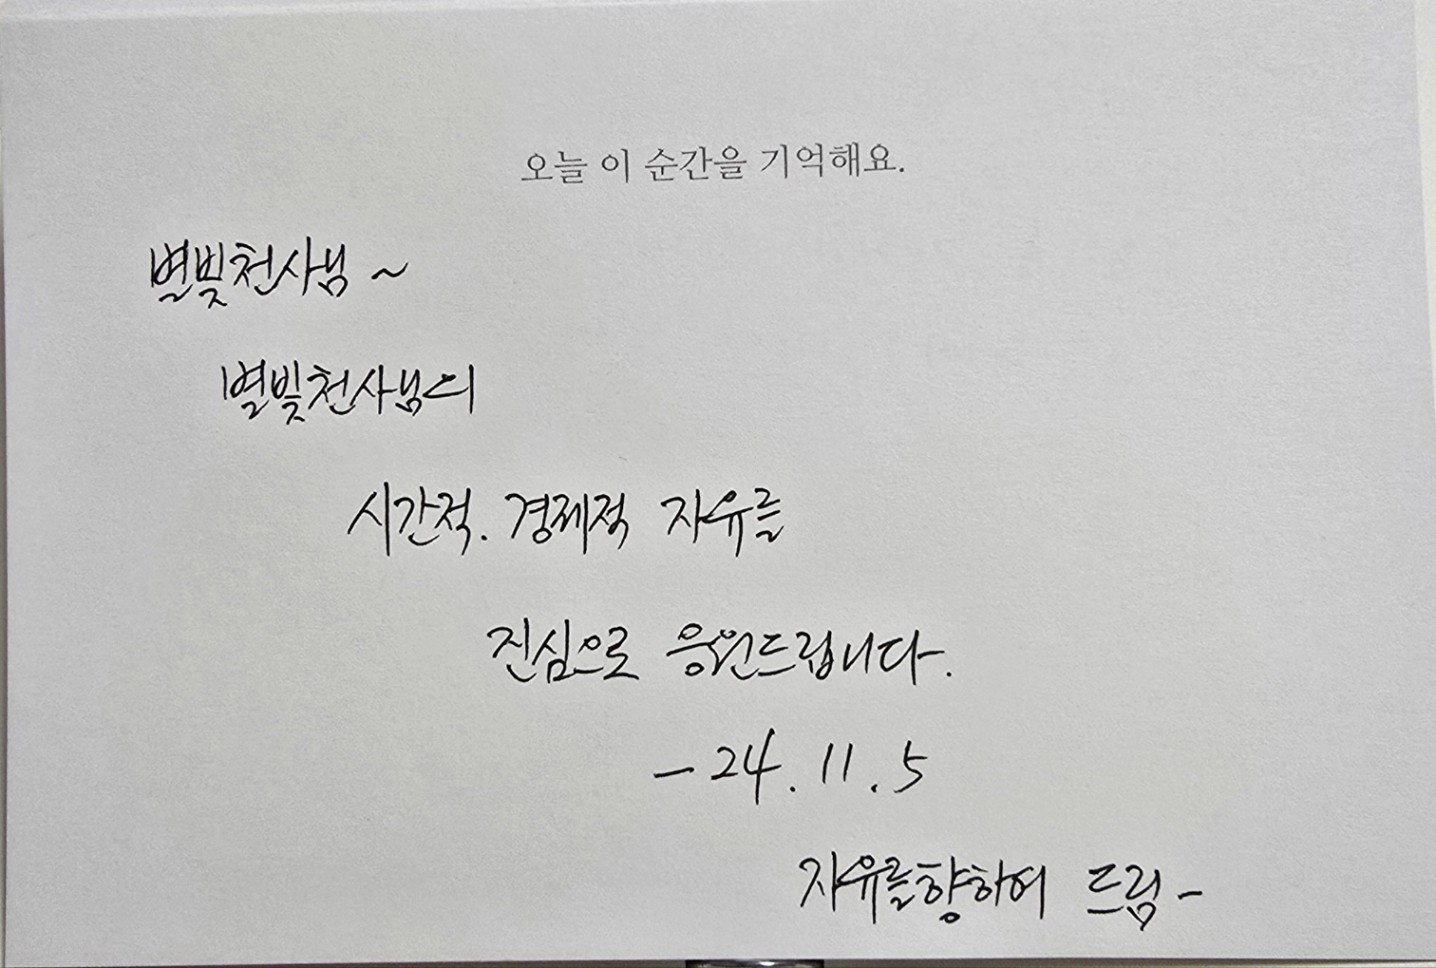 오늘 이 순간을 기억해요.
별빛천사님~
별빛천사님의
시간적. 경제적 자유를
진심으로 응원드립니다.
- 24. 11. 5
자유를향하여 드림-